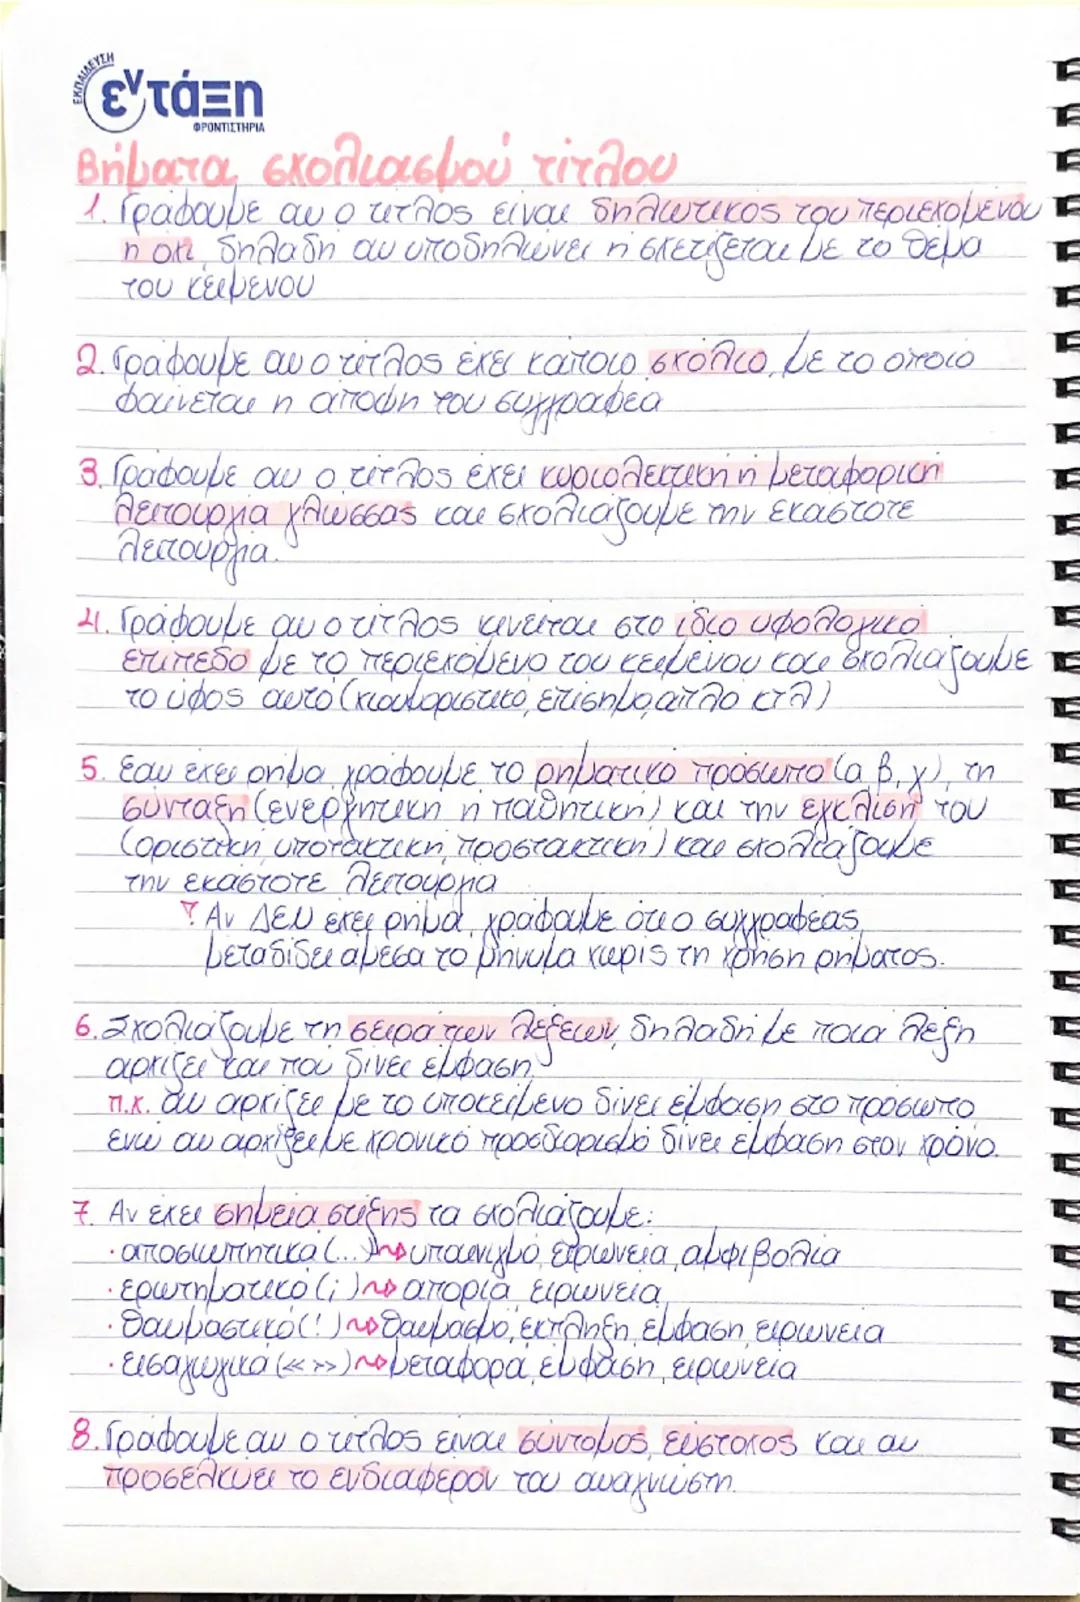 ΕΚΠΑΙΔΕΥΣΗ
εν τάξη
ΦΡΟΝΤΙΣΤΗΡΙΑ
Βήματα σχολιασμού τίτλου
1. Γράφουμε αν ο τίτλος είναι δηλωτικός του περιεχομένου
ή όχι, δηλαδή αν υποδηλώνει ή σχετίζεται με το θέμα
του κειμένου
2. Γράφουμε αν ο τίτλος έχει κάποιο σχόλιο, με το οποίο
φαίνεται η άποψη του συγγραφέα
3. Γράφουμε αν ο τίτλος έχει κυριολεκτική ή μεταφορική
λειτουργία γλώσσας και σχολιάζουμε την εκάστοτε
λειτουργία.
4. Γράφουμε αν ο τίτλος κινείται στο ίδιο υφολογικό
επίπεδο με το περιεχόμενο του κειμένου και σχολιάζουμε
το ύφος αυτό (χιουμοριστικό, επίσημο, απλό κτλ)
5. Εάν έχει ρήμα, γράφουμε το ρηματικό πρόσωπο (α, β, γ), τη
σύνταξη (ενεργητική ή παθητική) και την έγκλιση του
(οριστική, υποτακτική, προστακτική) και σχολιάζουμε
την εκάστοτε λειτουργία
! Αν ΔΕΝ έχει ρήμα, γράφουμε ότι ο συγγραφέας
μεταδίδει άμεσα το μήνυμα χωρίς τη χρήση ρήματος.
6. Σχολιάζουμε τη σειρά των λέξεων, δηλαδή με ποια λέξη
αρχίζει και που δίνει έμφαση.
π.χ. αν αρχίζει με το υποκείμενο δίνει έμφαση στο πρόσωπο
ενώ αν αρχίζει με χρονικό προσδιορισμό δίνει έμφαση στον χρόνο.
7. Αν έχει σημεία στίξης τα σχολιάζουμε:
· αποσιωπητικά (...) → υπαινιγμό, ειρωνεία, αμφιβολία
· ερωτηματικό (;) → απορία, ειρωνεία
· θαυμαστικό (!) → θαυμασμό, έκπληξη, έμφαση, ειρωνεία
· εισαγωγικά (« ») → μεταφορά, έμφαση, ειρωνεία
8. Γράφουμε αν ο τίτλος είναι σύντομος, εύστοχος και αν
προσελκύει το ενδιαφέρον του αναγνώστη.